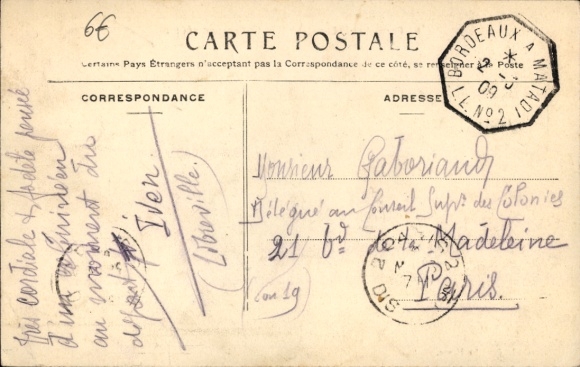 6€
CARTE POSTALE
Certains Pays Étrangers n'acceptant pas la Correspondance de ce côté, se renseigner à la Poste
CORRESPONDANCE
ADRESSE
BORDEAUX A MATADI
L.L. No 2
2
09
très cordiale & fidèle pensée
d'un Guinéen
au moment du
départ
Yven
(Libreville.)
Monsieur Gaboriaud
Délégué au Conseil Supr. des Colonies
21 bd de la Madeleine
Paris.
(ou 19)
DIS